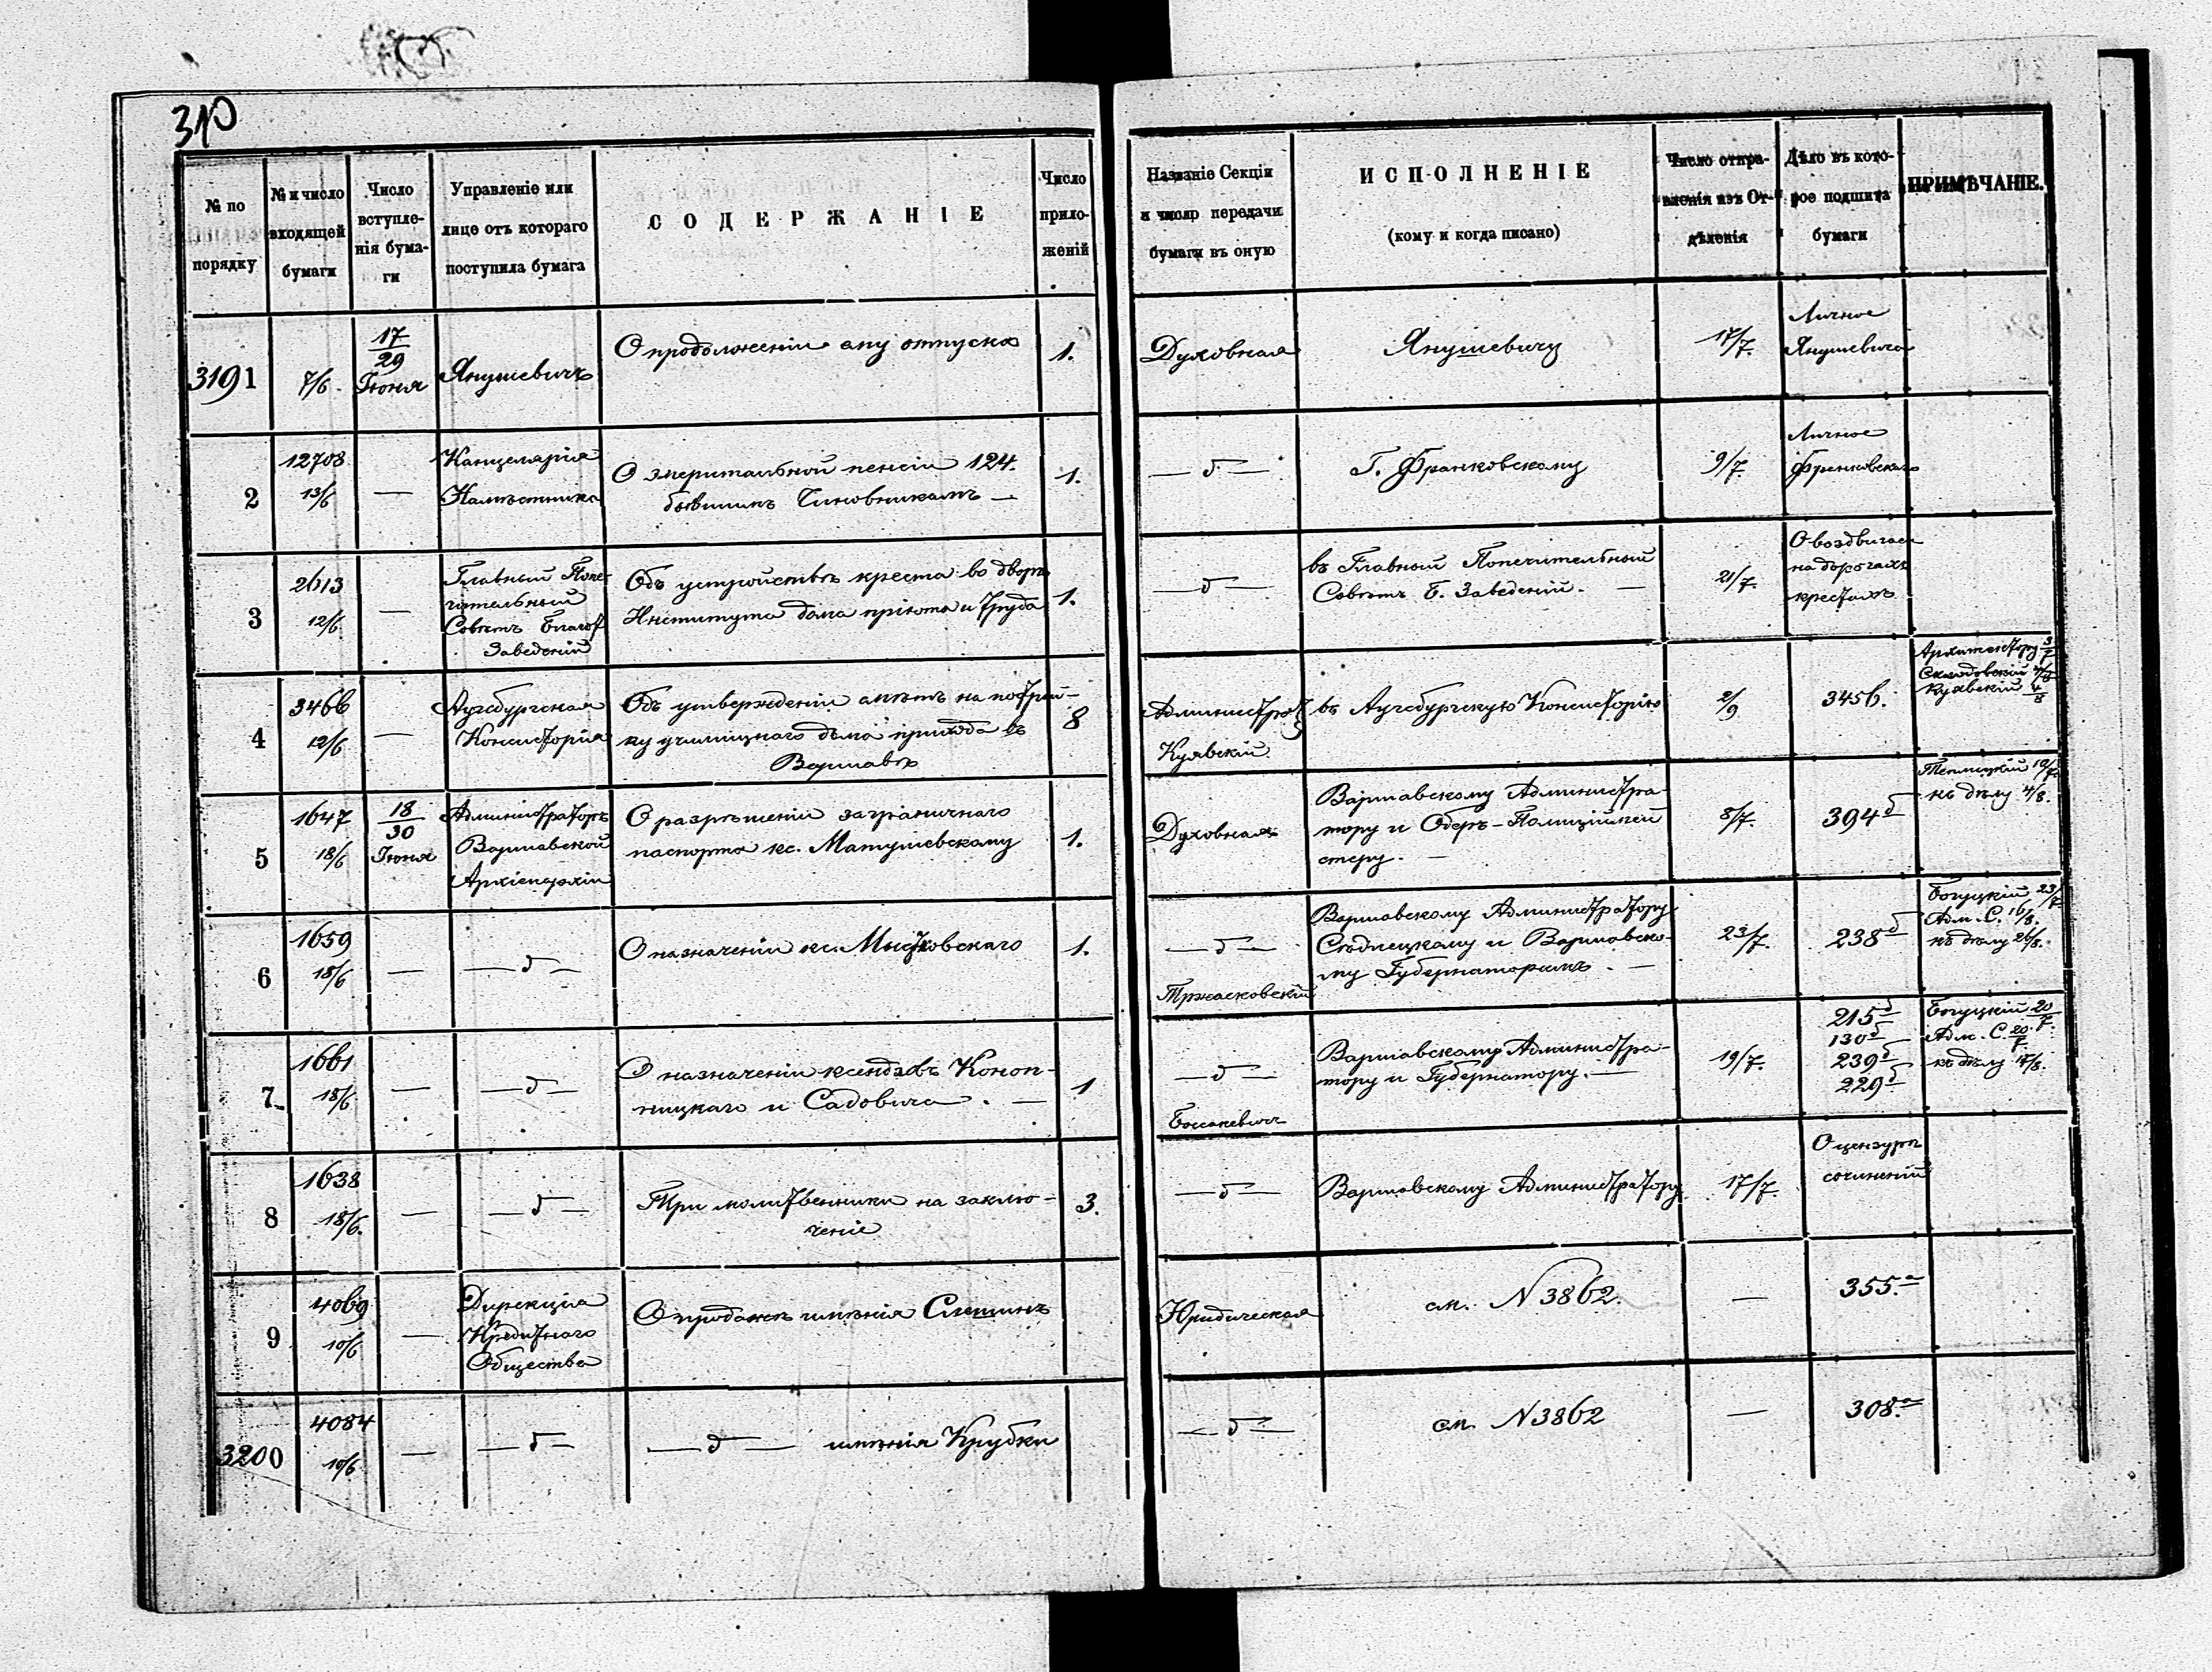 310
№ по порядку
№ и число входящей бумаги
Число вступле-нія бума-ги
Управленіе или лице отъ котораго поступила бумага
СОДЕРЖАНІЕ
Число прило-женій
Названіе Секціи и число передачи бумаги въ оную
ИСПОЛНЕНІЕ
(кому и когда писано)
Число отпра-вленія изъ От-дѣленія
Дѣло въ кото-рое подшита бумаги
ПРИМѢЧАНІЕ.
3191 7/6. 17/29 Іюня Янушевичъ О продолженіи ему отпуска 1. Духовная Янушевичу 17/7. Личное Янушевича
2 12708 13/6 — Канцелярія Намѣстника О эмеритальной пенсіи 124. бывшимъ Чиновникамъ — 1. — д — Г. Франковскому 9/7. Личное Франковскаго
3 2613 12/6 — Главный Попе-чительный Совѣтъ Благот. Заведеній Объ устройствѣ креста во дворѣ Института дома пріюта и труда 1. — д — въ Главный Попечительный Совѣтъ Б. Заведеній. — 21/7. О воздвигаем. на дорогахъ крестахъ
4 3466 12/6 — Аугсбургская Консисторія Объ утвержденіи смѣтъ на построй-ку училищнаго дома прихода въ Варшавѣ 8 Администрат. Куявскій. въ Аугсбургскую Консисторію 2/9 345б. Архитектору 3/7 Склодовскій Куявскій 4/8
5 1647 18/6 18/30 Іюня Администраторъ Варшавской Архіепархіи О разрѣшеніи заграничнаго паспорта кс. Матушевскому 1. Духовная Варшавскому Администра-тору и Оберъ-Полиціймей стеру. — 8/7. 394 б Теплицкій 10/7. къ дѣлу 4/8.
6 1659 18/6 — — д — О назначеніи кс. Мыстковскаго 1. — д — Тржасковскій Варшавскому Администратору Сѣдлецкому и Варшавско-му Губернаторамъ. — 23/7. 238 б Богуцкій 23/7 Адм. С. 16/8. къ дѣлу 26/8.
7 1661 18/6 — — д — О назначеніи ксендзовъ Коноп-ницкаго и Садовича. — 1 — д — Варшавскому Администра-тору и Губернатору. — 19/7. 215 б 130 б 239 б 229 б Богуцкій 20/7. Адм. С. 20/7. къ дѣлу 17/8.
8 1638 18/6. — — д — Три молитвенника на заклю-ченіе 3. — д — Варшавскому Администратору 17/7. О цензурѣ сочиненій
9 4069 10/6 — Дирекція Кредитнаго Общества О продажѣ имѣнія Слешинъ Юридическая см. N 3862. — 355. а
3200 4084 10/6. — — д — — д — имѣнія Крубки — д — см. N 3862 — 308. а